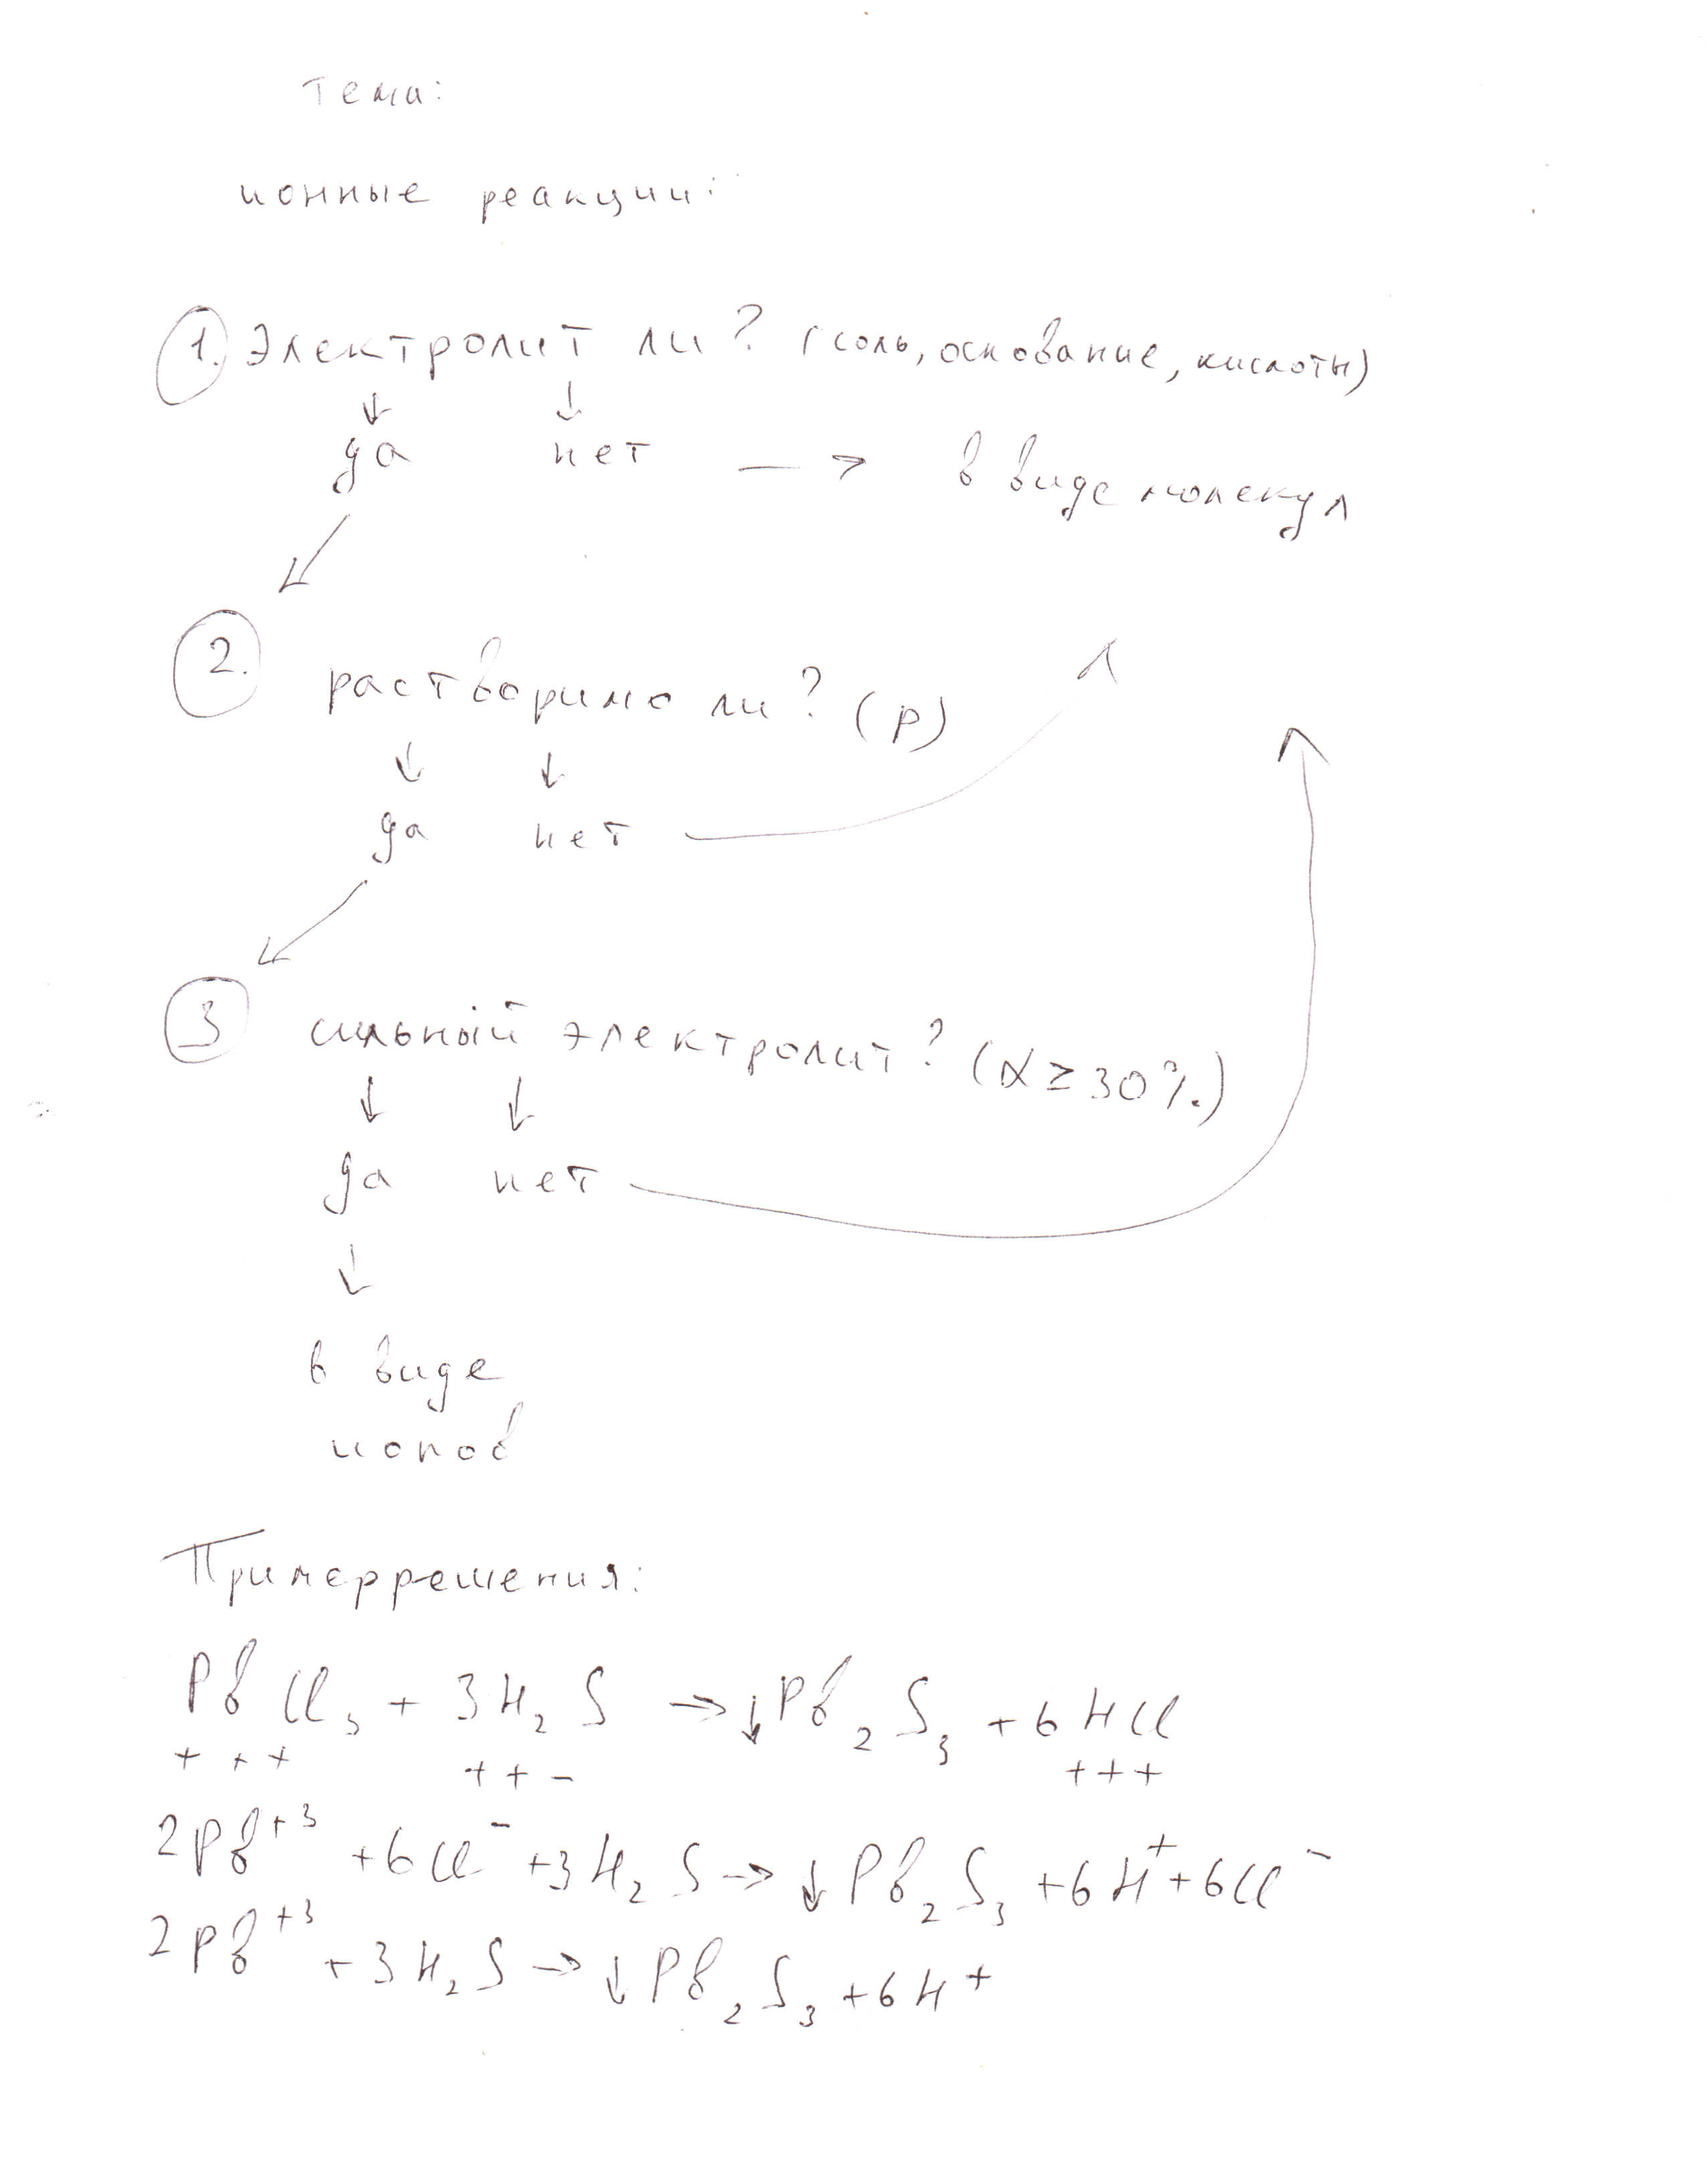 тема:
ионные реакции:
1. Электролит ли? (соль, основание, кислоты)
↓ ↓
да нет —> в виде молекул
2. растворимо ли? (р)
↓ ↓
да нет
3 сильный электролит? (α ≥ 30%.)
↓ ↓
да нет
↓
в виде
ионов
Пример решения:
PbCl₃ + 3H₂S → ↓Pb₂S₃ + 6HCl
+ + + + + - + + +
2Pb⁺³ + 6Cl⁻ + 3H₂S → ↓Pb₂S₃ + 6H⁺ + 6Cl⁻
2Pb⁺³ + 3H₂S → ↓Pb₂S₃ + 6H⁺